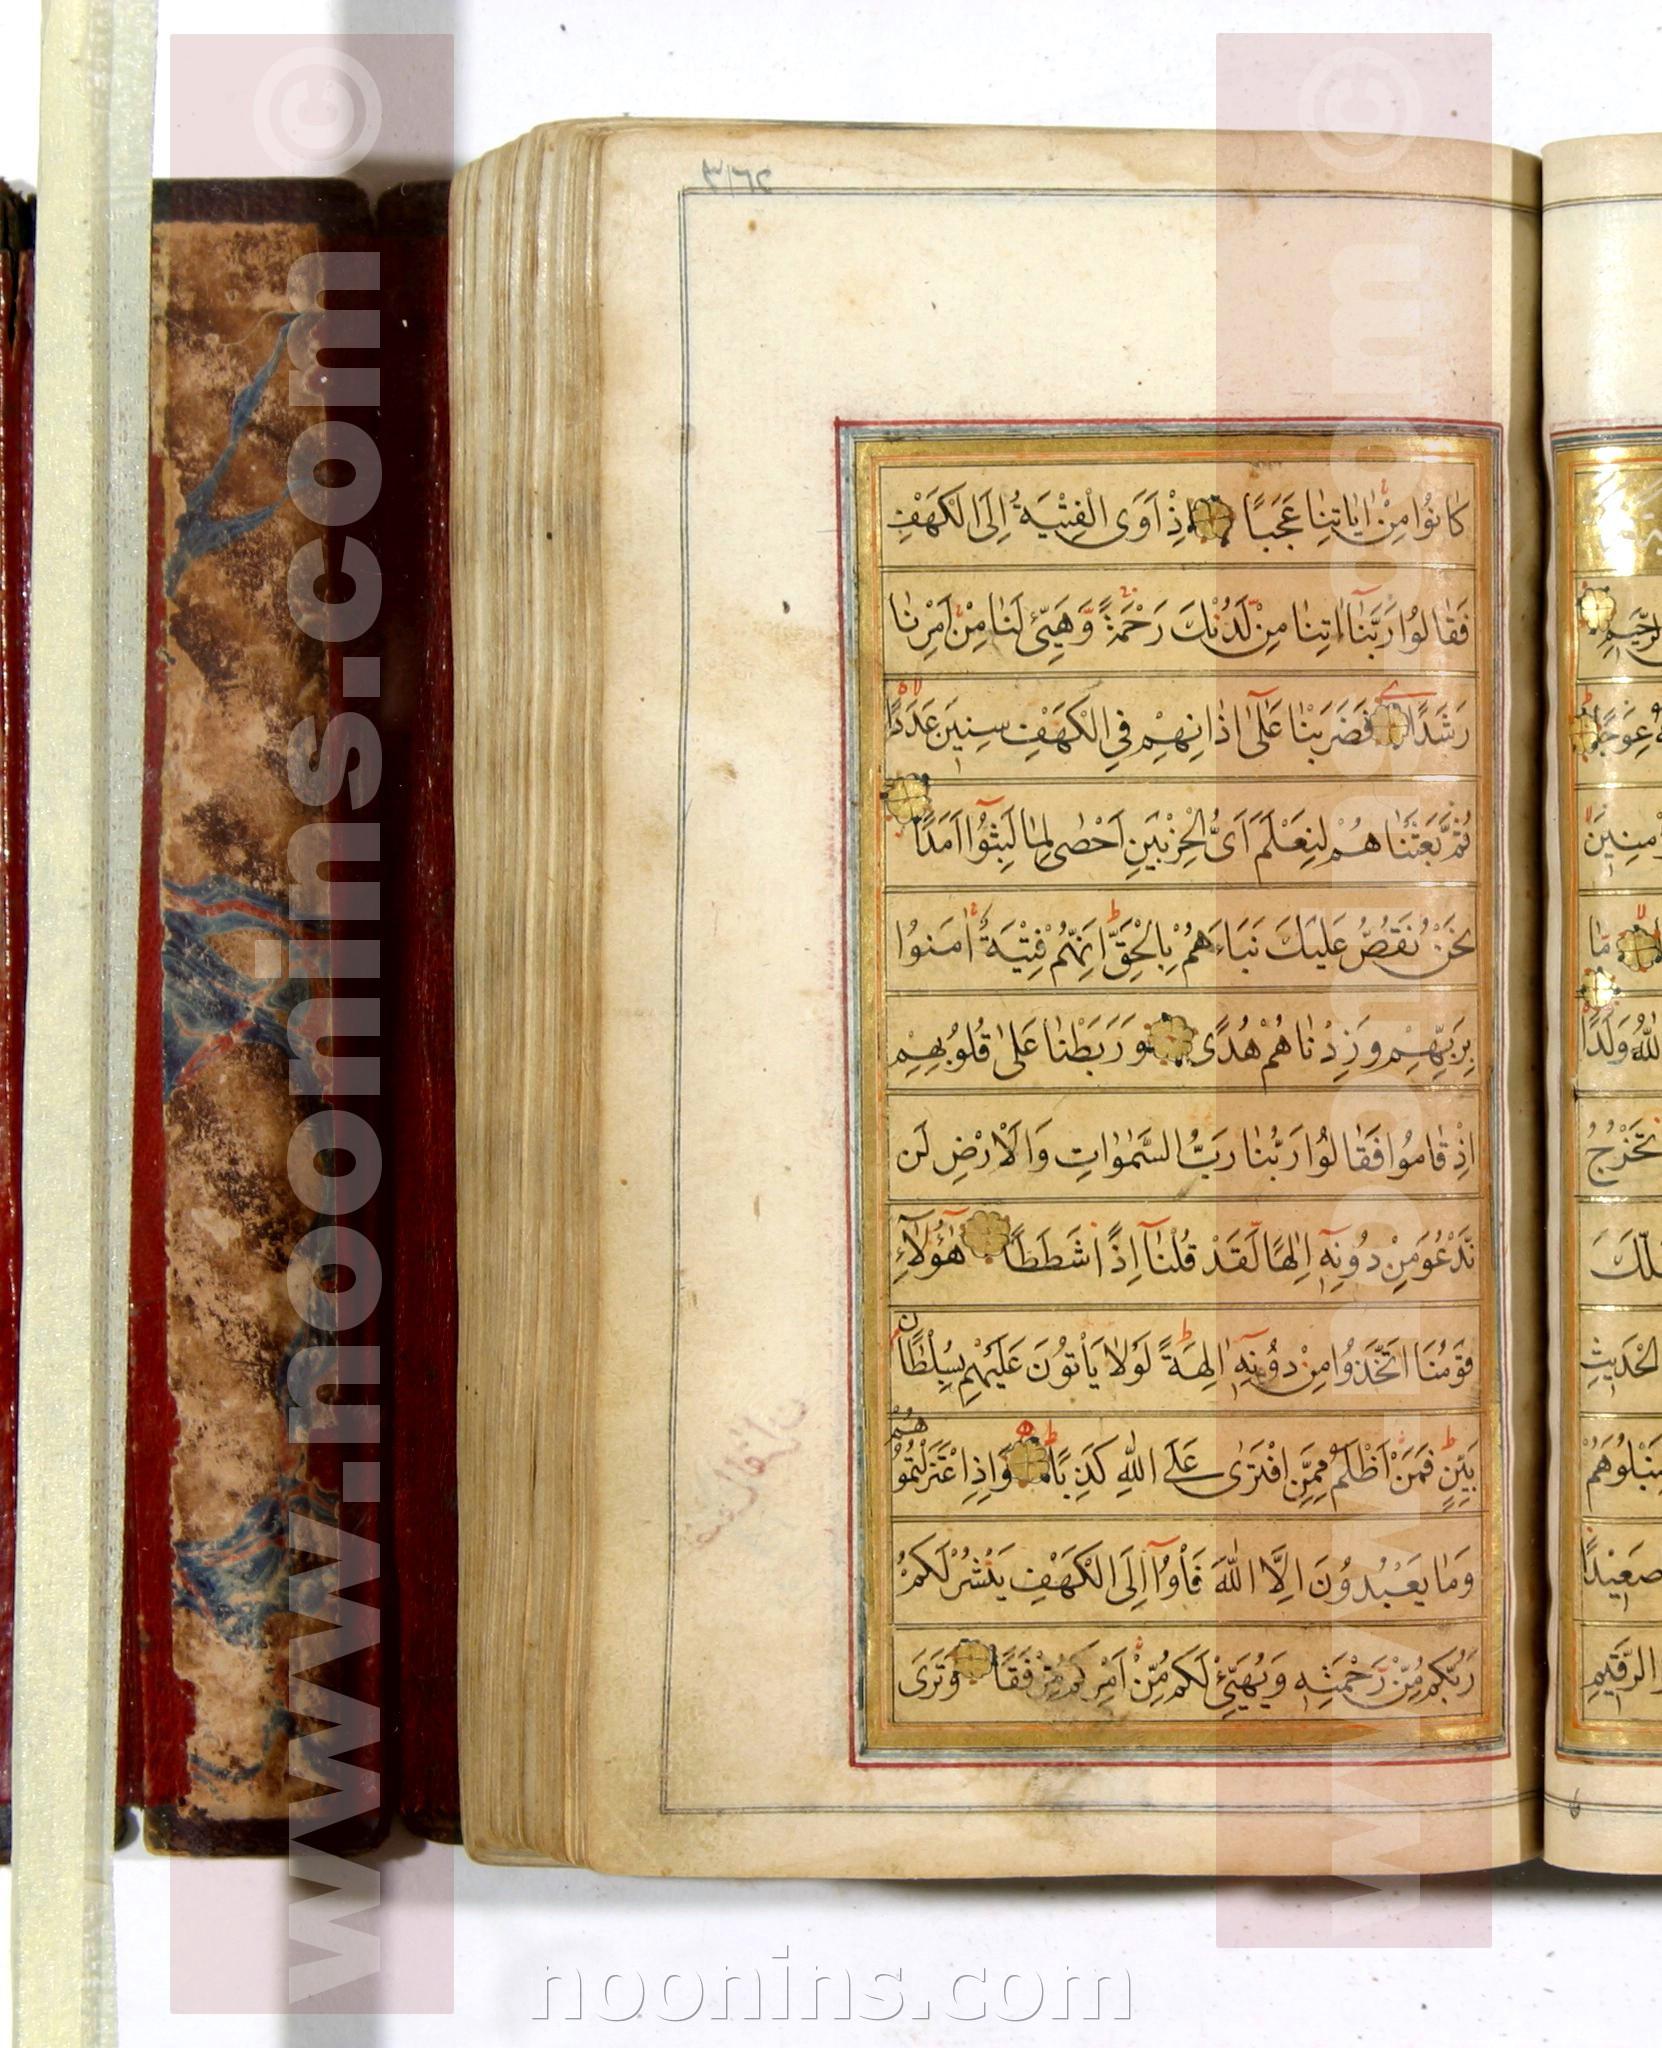 كانُوا مِنْ اٰيٰاتِنٰا عَجَبًا اِذْ اَوَى الْفِتْيَةُ اِلَى الْكَهْفِ
فَقٰالُوا رَبَّنٰا اٰتِنٰا مِنْ لَدُنْكَ رَحْمَةً وَهَيِّئْ لَنٰا مِنْ اَمْرِنٰا
رَشَدًا فَضَرَبْنٰا عَلٰى اٰذٰانِهِمْ فِي الْكَهْفِ سِنِينَ عَدَدًا
ثُمَّ بَعَثْنٰاهُمْ لِنَعْلَمَ اَىُّ الْحِزْبَيْنِ اَحْصٰى لِمٰا لَبِثُوٓا اَمَدًا
نَحْنُ نَقُصُّ عَلَيْكَ نَبَاَهُمْ بِالْحَقِّ اِنَّهُمْ فِتْيَةٌ اٰمَنُوا
بِرَبِّهِمْ وَزِدْنٰاهُمْ هُدًى وَرَبَطْنٰا عَلٰى قُلُوبِهِمْ
اِذْ قٰامُوا فَقٰالُوا رَبُّنٰا رَبُّ السَّمٰوٰاتِ وَالْاَرْضِ لَنْ
نَّدْعُوَ مِنْ دُونِهٖٓ اِلٰهًا لَقَدْ قُلْنٰآ اِذًا شَطَطًا هٰٓؤُلَآءِ
قَوْمُنَا اتَّخَذُوا مِنْ دُونِهٖٓ اٰلِهَةً لَوْلٰا يَاْتُونَ عَلَيْهِمْ بِسُلْطٰانٍ
بَيِّنٍ فَمَنْ اَظْلَمُ مِمَّنِ افْتَرٰى عَلَى اللّٰهِ كَذِبًا وَاِذِ اعْتَزَلْتُمُوهُمْ
وَمٰا يَعْبُدُونَ اِلَّا اللّٰهَ فَاْوُٓا اِلَى الْكَهْفِ يَنْشُرْ لَكُمْ
رَبُّكُمْ مِّنْ رَّحْمَتِهٖ وَيُهَيِّئْ لَكُمْ مِّنْ اَمْرِكُمْ مِّرْفَقًا وَتَرَى
www.noonins.com ©
www.noonins.com ©
noonins.com